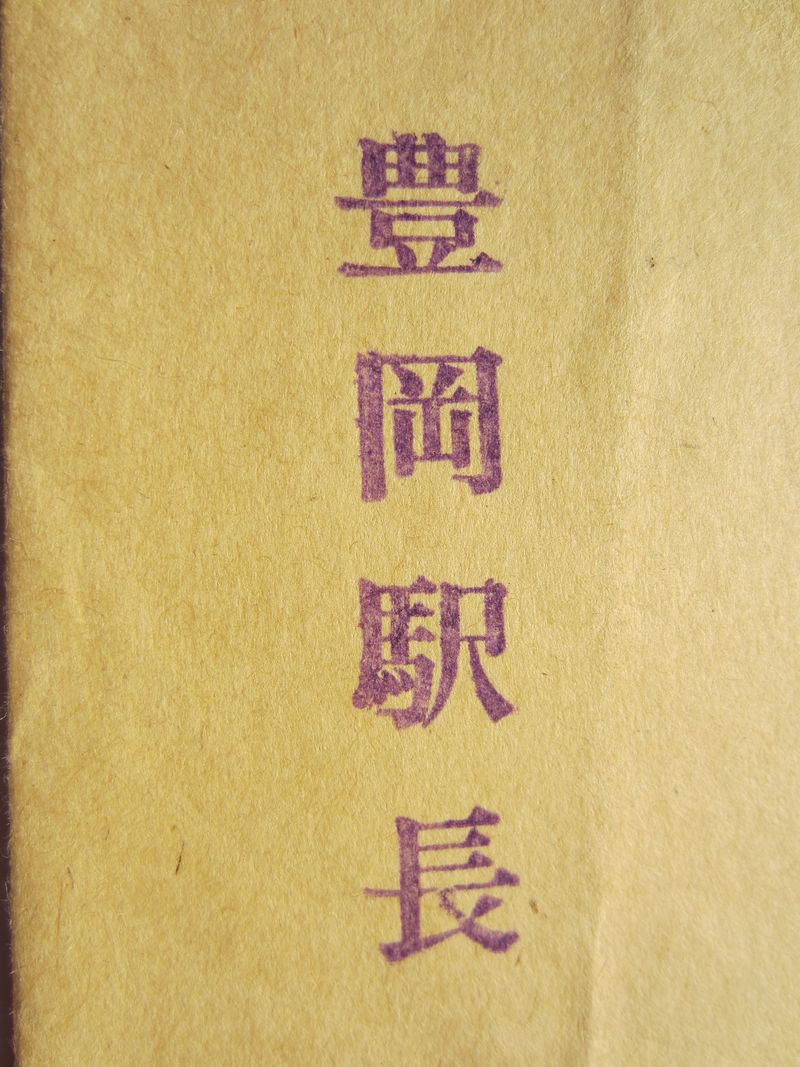 豊岡駅長